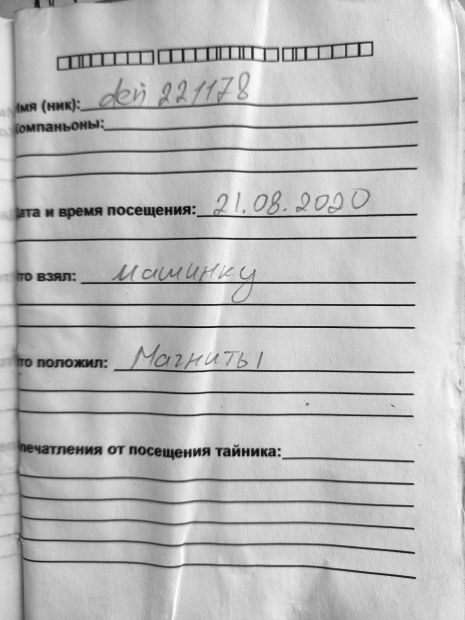 Имя (ник): deй 221178
Компаньоны:
Дата и время посещения: 21.08.2020
Что взял: машинку
Что положил: Магниты
Впечатления от посещения тайника: